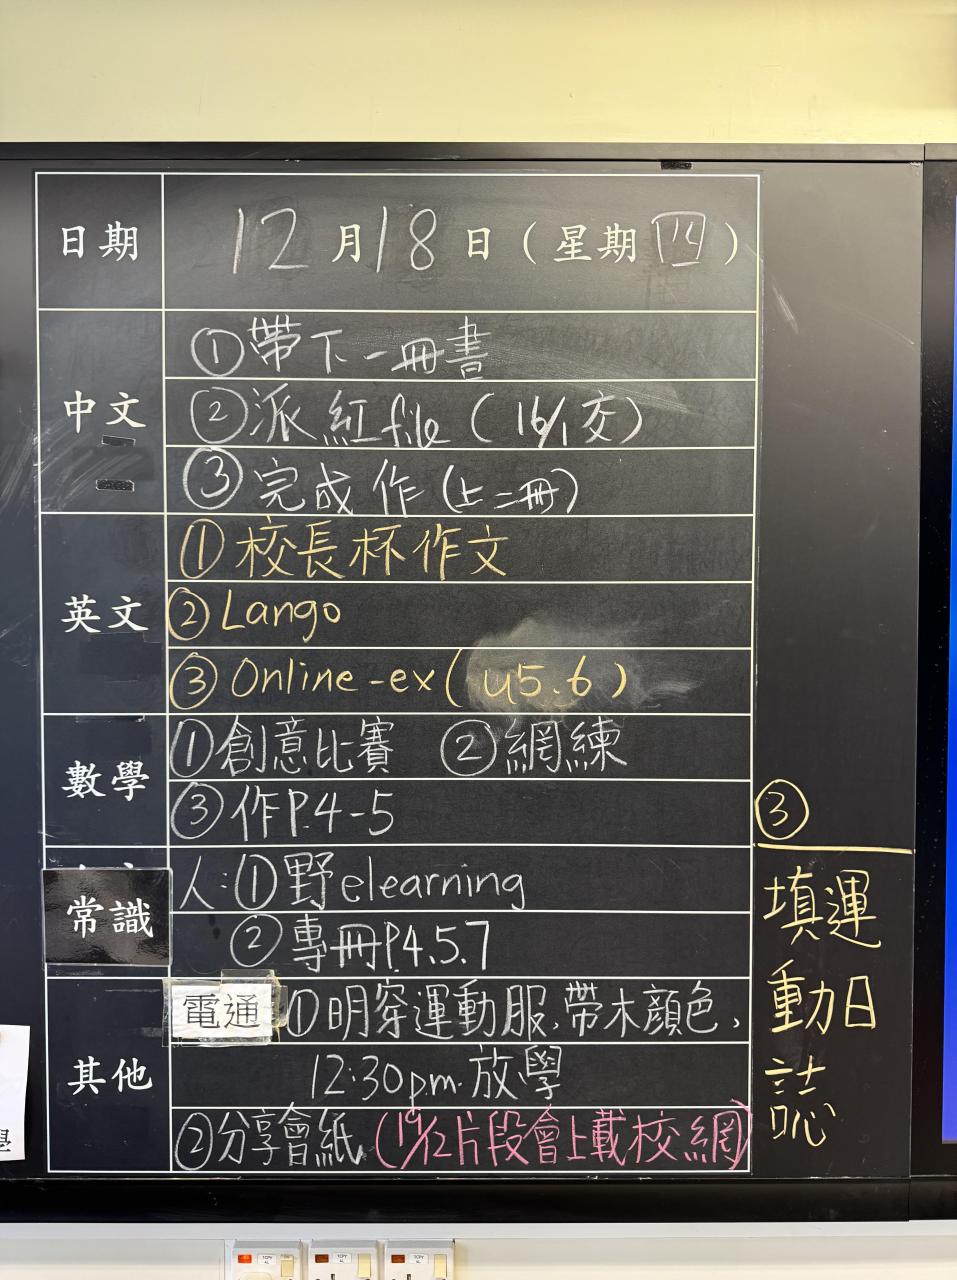 日期 12月18日（星期四）
中文 ①帶下一冊書
②派紅file（16/1交）
③完成作（上二冊）
英文 ①校長杯作文
②Lango
③Online-ex（u5.6）
數學 ①創意比賽 ②網練
③作P.4-5
常識 人:①野elearning
②專冊P.4.5.7
其他 電通 ①明穿運動服,帶木顏色,
12:30p.m.放學
②分享會紙（19/12片段會上載校網）
③
填運
動日
誌